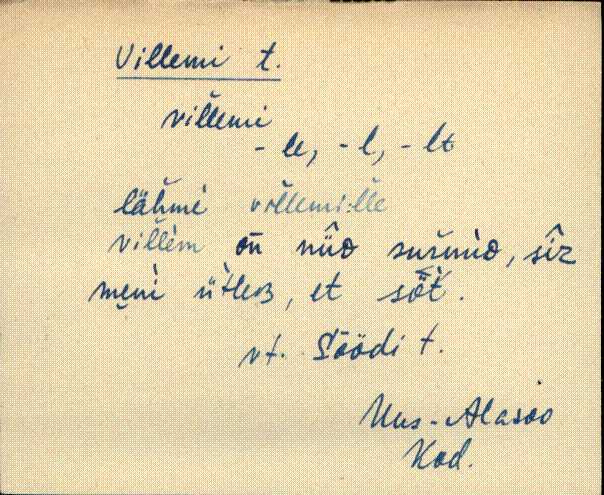 Villemi t.
villemi
- le, -l, -lt
lähmi villemi:lle
villem on nüo surnuD, siz
meni ütleB, et söt.
vt. Söödi t.
Uus-Alasoo
Kod.